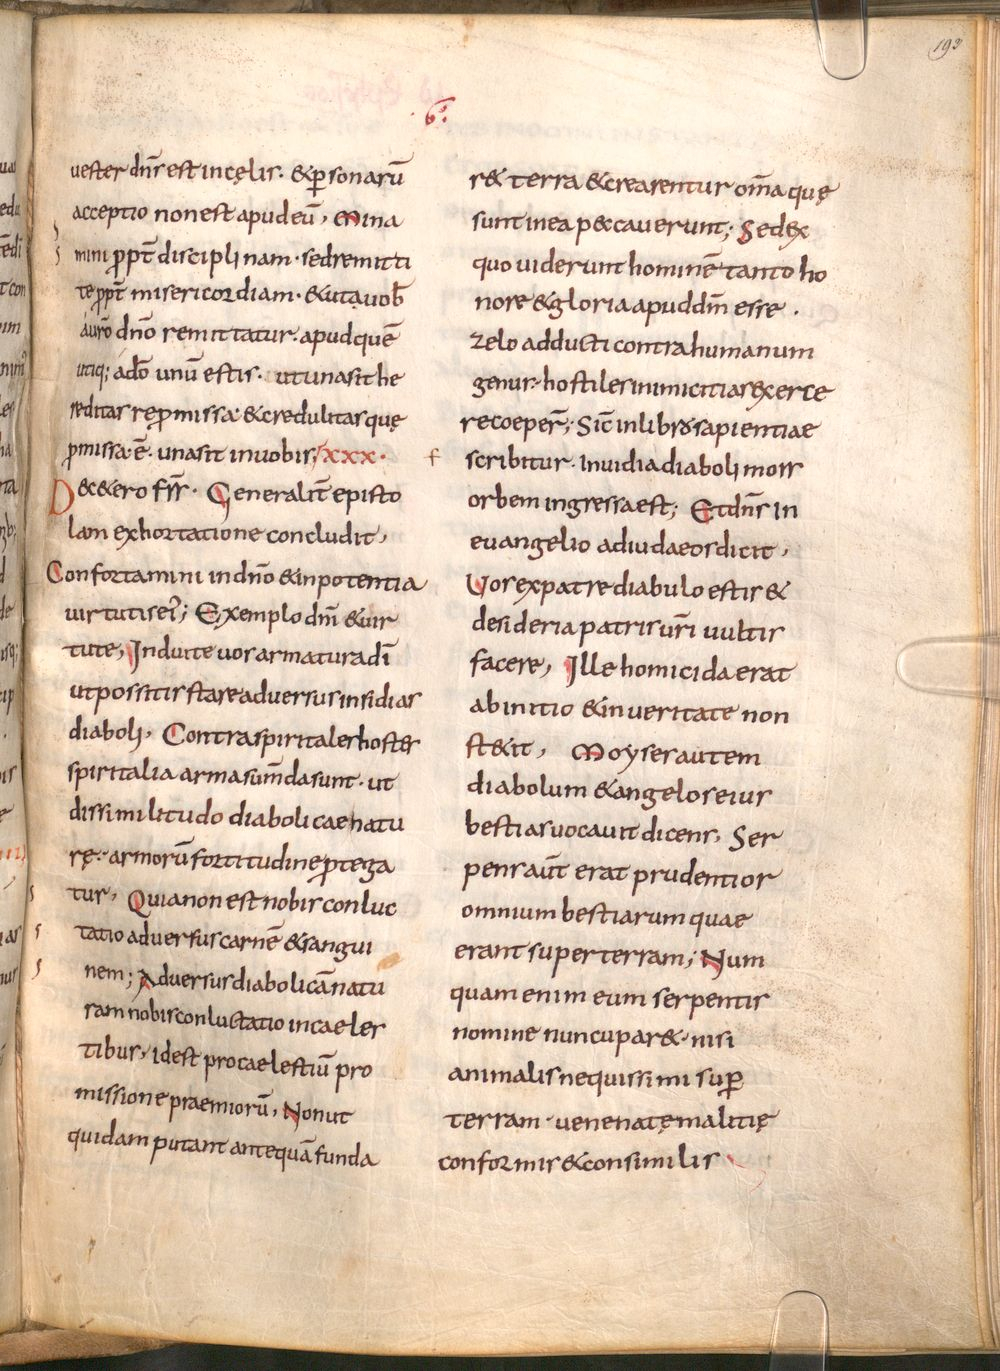 193
6.
uester dn̄s est in cęlis. & ꝑsonarū
acceptio non est apud eū, Mina
mini ꝓpt̄ disciplinam. sed remitti
te ꝓpt̄ misericordiam. & ut a uob̄
dn̄o remittatur. apud quē
utiq; ad̄o unū estis. ut una sit he
reditas repromissa. & credulitas quę
ꝓmissa ē. una sit in uobis; xxx.
De & ero fr̄s. Generalit̄ episto
lam exhortatione concludit,
Confortamini in dn̄o & in potentia
uirtutis ei᾽; Exemplo dn̄i & uir
tute, Induite uos armatura dī
ut possitis stare aduersus insidias
diaboli, Contra spiritales hostes
spiritalia arma sum̄da sunt. ut
dissimilitudo diabolicae natu
rę. armorū fortitudine ꝓtega
tur, Quia non est nobis conluc
tatio aduersus carnē & sangui
nem; Aduersus diabolicā natu
ram nobis conluctatio in caeles
tibus, id est pro caelestiū pro
missione praemiorū, Non ut
quidam putant antequā funda
r& terra & crearentur om̄a quę
sunt in ea p&cauerunt; Sed ex
quo uiderunt hominē tanto ho
nore & gloria apud dm̄ esse.
zelo adducti contra humanum
genus. hostiles inimicitias exerce
re coeper̄; Sic̄ in libro sapientiae
scribitur. Inuidia diaboli mors
orbem ingressa est; Et dn̄s in
euangelio ad iudaeos dicit,
Vos ex patre diabulo estis &
desideria patris ur̄i uultis
facere, Ille homicida erat
ab initio & in ueritate non
st&it, Moyses autem
diabolum & angelos eius
bestias uocauit dicens, Ser
pens aūt erat prudentior
omnium bestiarum quae
erant super terram; Num
quam enim eum serpentis
nomine nuncupar&. nisi
animalis nequissimi suꝑ
terram. uenenatę malitię
conformis & consimilis